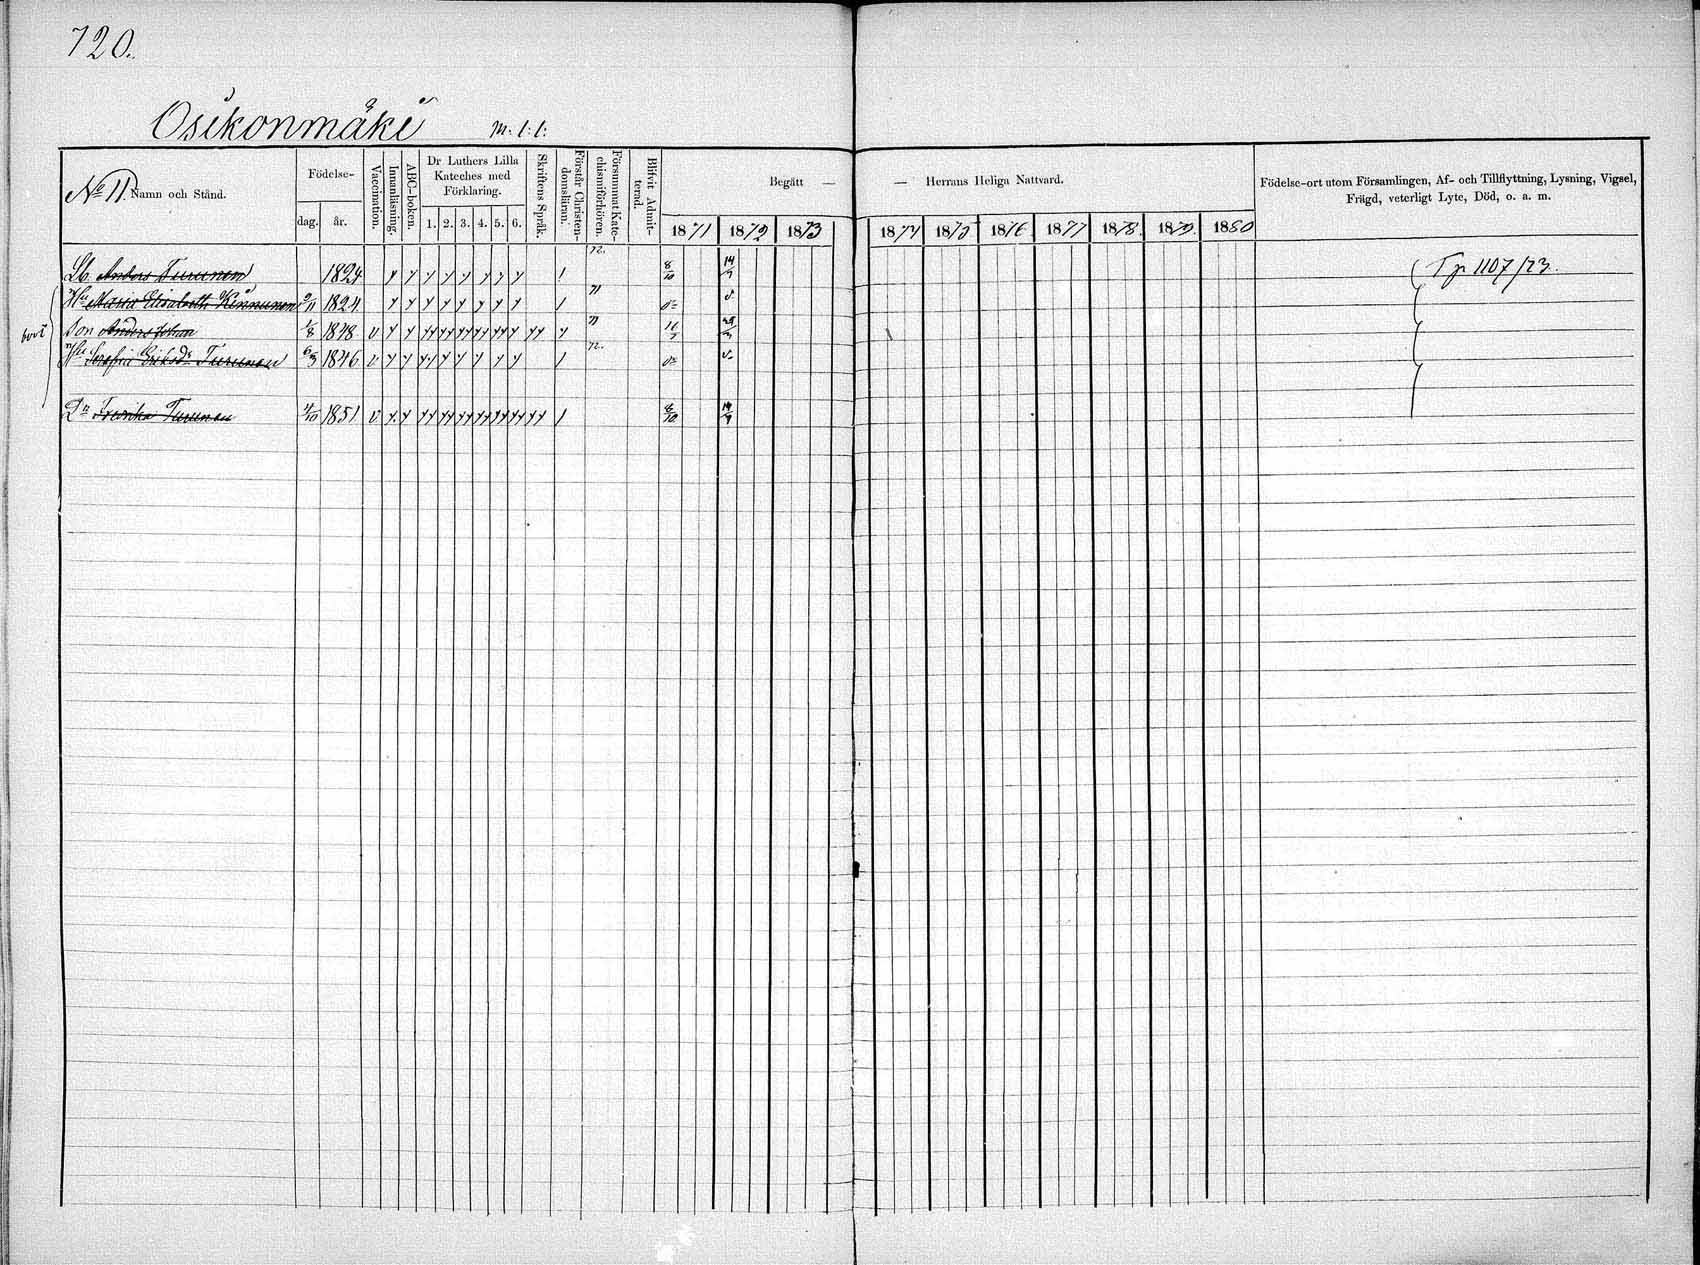 720.
Osikonmäki m. 1:1:
No 11. Namn och Stånd.
Födelse-
dag. år.
Vaccination.
Innanläsning.
ABC-boken.
Dr Luthers Lilla
Kateches med
Förklaring.
1. 2. 3. 4. 5. 6.
Skriftens Språk.
Förstår Christen-
domsläran.
Försummat Kate-
chismiförhören.
Blifvit Admit-
terad.
Begått — — Herrans Heliga Nattvard.
1871 1872 1873 1874 1875 1876 1877 1878. 1879. 1880
Födelse-ort utom Församlingen, Af- och Tillflyttning, Lysning, Vigsel,
Frägd, veterligt Lyte, Död, o. a. m.
Lb. Anders Turunen 1824 72. 8/10 14/7 T. p. 1107/73.
Hu Maria Elisabeth Kinnunen 1824 71
Son Anders Johan 1/8 1848 v 71
Hu Serafia Eriksdr Turunen 6/3 1846 v 72.
Dr Fredrika Turunen 4/10 1851 v 8/10 14/7